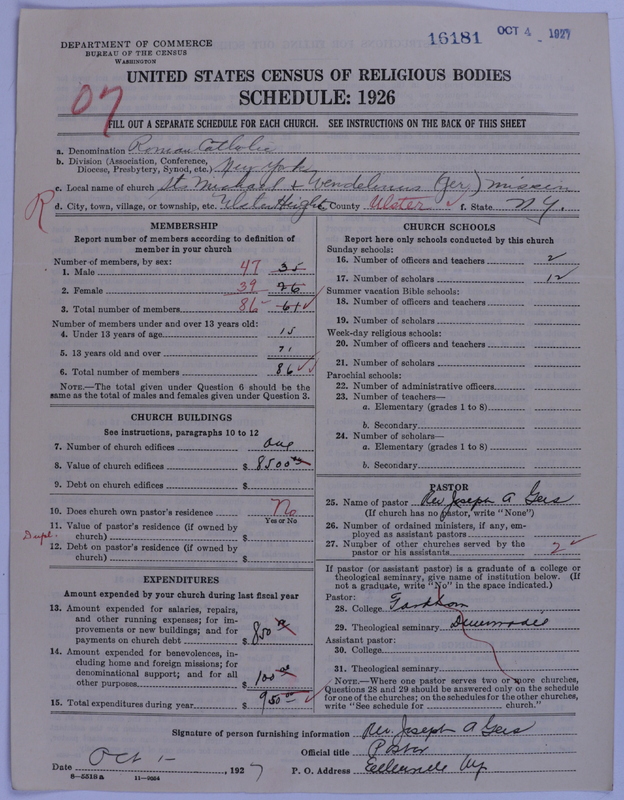 16181 OCT 4 1927
DEPARTMENT OF COMMERCE
BUREAU OF THE CENSUS
WASHINGTON
UNITED STATES CENSUS OF RELIGIOUS BODIES
SCHEDULE: 1926
07
FILL OUT A SEPARATE SCHEDULE FOR EACH CHURCH. SEE INSTRUCTIONS ON THE BACK OF THIS SHEET
a. Denomination Roman Catholic
b. Division (Association, Conference,
Diocese, Presbytery, Synod, etc.) New York
c. Local name of church Sts Michael & Wendelinus (Ger.) mission
R d. City, town, village, or township, etc. Ulster Heights County Ulster f. State N.Y.
MEMBERSHIP
Report number of members according to definition of
member in your church
Number of members, by sex:
1. Male 47 35
2. Female 39 26
3. Total number of members 86 61
Number of members under and over 13 years old:
4. Under 13 years of age 15
5. 13 years old and over 71
6. Total number of members 86
NOTE.—The total given under Question 6 should be the
same as the total of males and females given under Question 3.
CHURCH BUILDINGS
See instructions, paragraphs 10 to 12
7. Number of church edifices One
8. Value of church edifices $ 8500
9. Debt on church edifices $
10. Does church own pastor's residence No
Yes or No
11. Value of pastor's residence (if owned by
Dupl. church) $
12. Debt on pastor's residence (if owned by
church) $
EXPENDITURES
Amount expended by your church during last fiscal year
13. Amount expended for salaries, repairs,
and other running expenses; for im-
provements or new buildings; and for
payments on church debt $ 850
14. Amount expended for benevolences, in-
cluding home and foreign missions; for
denominational support; and for all
other purposes $ 100 00
15. Total expenditures during year $ 950 00
CHURCH SCHOOLS
Report here only schools conducted by this church
Sunday schools:
16. Number of officers and teachers 2
17. Number of scholars 12
Summer vacation Bible schools:
18. Number of officers and teachers
19. Number of scholars
Week-day religious schools:
20. Number of officers and teachers
21. Number of scholars
Parochial schools:
22. Number of administrative officers
23. Number of teachers—
a. Elementary (grades 1 to 8)
b. Secondary
24. Number of scholars—
a. Elementary (grades 1 to 8)
b. Secondary
PASTOR
25. Name of pastor Rev Joseph A Geis
(If church has no pastor, write "None")
26. Number of ordained ministers, if any, em-
ployed as assistant pastors
27. Number of other churches served by the
pastor or his assistants 2
If pastor (or assistant pastor) is a graduate of a college or
theological seminary, give name of institution below. (If
not a graduate, write "No" in the space indicated.)
Pastor:
28. College Fordham
29. Theological seminary Dunwoodie
Assistant pastor:
30. College
31. Theological seminary
NOTE.—Where one pastor serves two or more churches,
Questions 28 and 29 should be answered only on the schedule
for one of the churches; on the schedules for the other churches,
write "See schedule for church."
Signature of person furnishing information Rev. Joseph A Geis
Official title Pastor
Date Oct 1 , 1927 P. O. Address Ellenville Ny
8—5518a 11—9084